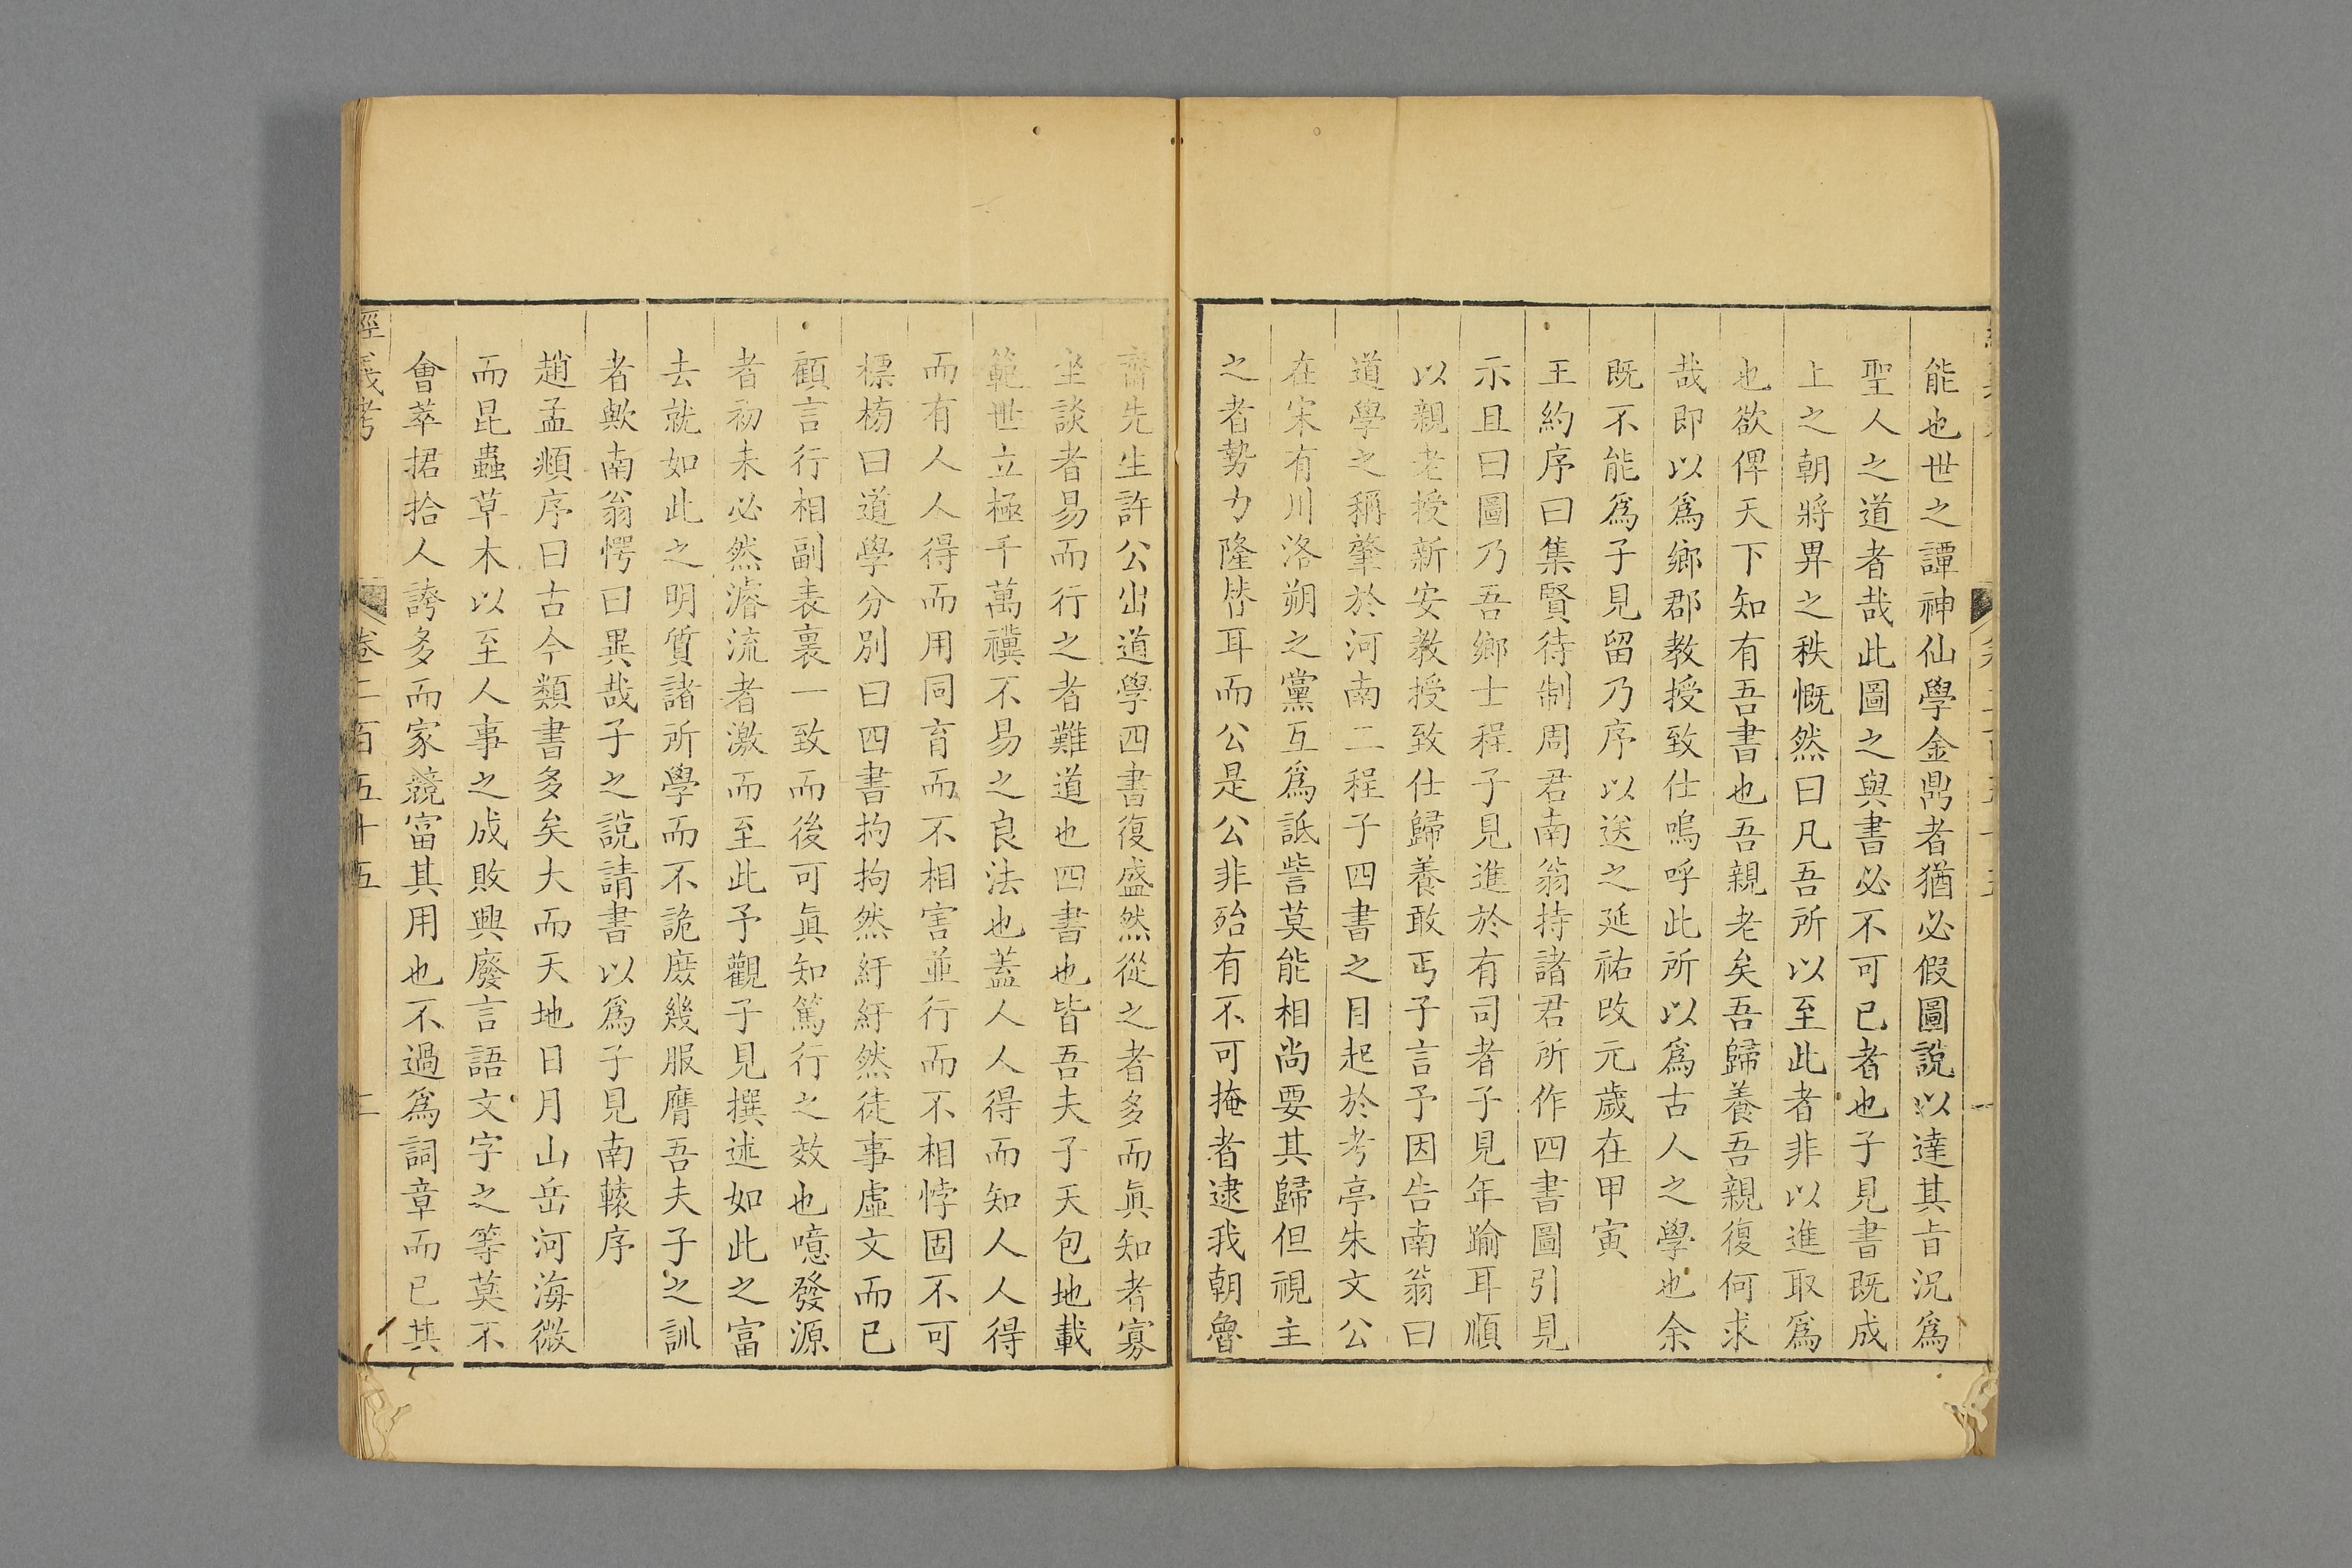 能也世之譚神仙學金鼎者猶必假圖說以達其旨況爲
聖人之道者哉此圖之與書必不可已者也子見書既成
上之朝將畀之秩慨然曰凡吾所以至此者非以進取爲
也欲俾天下知有吾書也吾親老矣吾歸養吾親復何求
哉即以爲鄉郡教授致仕嗚呼此所以爲古人之學也余
既不能爲子見留乃序以送之延祐改元歲在甲寅
王約序曰集賢待制周君南翁持諸君所作四書圖引見
示且曰圖乃吾鄉士程子見進於有司者子見年踰耳順
以親老授新安教授致仕歸養敢丐子言予因告南翁曰
道學之稱肇於河南二程子四書之目起於考亭朱文公
在宋有川洛朔之黨互爲詆訾莫能相尚要其歸但視主
之者勢力隆呰耳而公是公非殆有不可掩者逮我朝魯
齋先生許公出道學四書復盛然從之者多而眞知者寡
坐談者易而行之者難道也四書也皆吾夫子天包地載
範世立極千萬禩不易之良法也蓋人人得而知人人得
而有人人得而用同育而不相害並行而不相悖固不可
標榜曰道學分別曰四書拘拘然紆紆然徒事虛文而已
顧言行相副表裏一致而後可眞知篤行之效也噫發源
者初未必然濬流者激而至此予觀子見撰述如此之富
去就如此之明質諸所學而不詭庶幾服膺吾夫子之訓
者歟南翁愕曰異哉子之說請書以爲子見南轅序
趙孟頫序曰古今類書多矣大而天地日月山岳河海微
而昆蟲草木以至人事之成敗興廢言語文字之等莫不
會萃捃拾人誇多而家競富其用也不過爲詞章而已其
經義考 卷二百五十五 二